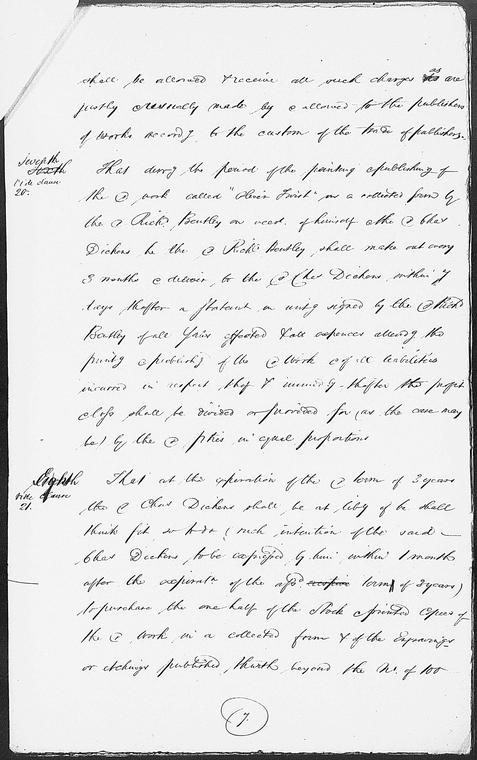 shall be allowed & receive all such charges as are
justly & usually made by & allowed to the publishers
of works accordg. to the custom of the trade of publishers.
Seventh
Vide clause
20.
That durg the period of the printing & publishing of
the sd work called "Oliver Twist" in a collected form by
the sd Richd. Bentley on acct. of himself & the sd Chas
Dickens he the sd Richd. Bentley shall make out every
3 months & deliver to the sd Chas Dickens within 7
days thafter a statemt in writg signed by the sd Richd
Bentley of all sales effected & all expences attendg the
printg & publishg of the sd work & of all liabilities
incurred in respect thof & immedly thafter the profit
or loss shall be divided or provided for (as the case may
be) by the sd pties in equal proportions
Eighth
Vide Clause
21.
That at the expiration of the sd term of 3 years
the sd Chas Dickens shall be at liby if he shall
think fit so to do (such intention of the said
Chas Dickens to be expressed by him within 1 month
after the expiratn of the afsd. term of 3 years)
to purchase the one half of the Stock & printed Copies of
the sd work in a collected form & of the Engravings
or etchings published thwith beyond the No. of 100
7.